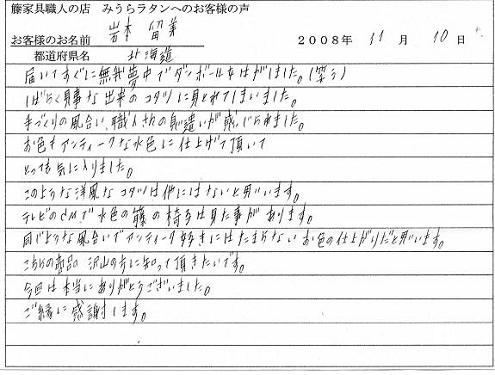 藤家具職人の店　みうらラタンへのお客様の声
お客様のお名前　岩本　留美　2008年　11月　10日
都道府県名　北海道
届いてすぐに無我夢中でダンボールをはがしました。(笑う)
しばらく見事な出来のコタツに見とれてしまいました。
手づくりの風合い、職人さんの気遣いが感じられました。
お色もアンティークな水色に仕上げて頂いて
とっても気に入りました。
このような洋風なコタツは他にはないと思います。
テレビのCMで水色の籐の椅子は見た事があります。
同じような風合いでアンティーク好きにはたまらないお色の仕上がりだと思います。
こちらの商品、沢山の方に知って頂きたいです。
今回は本当にありがとうございました。
ご縁に感謝します。